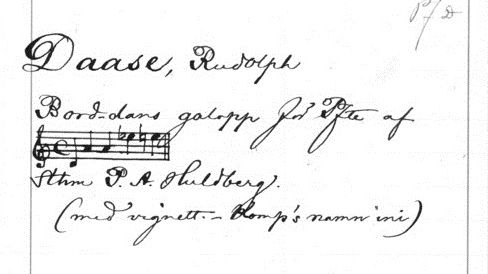 P/D
Daase, Rudolph
Bord-dans galopp för Pfte af
Sthm P. A. Huldberg.
(med vignett. - Komp's namn ini)